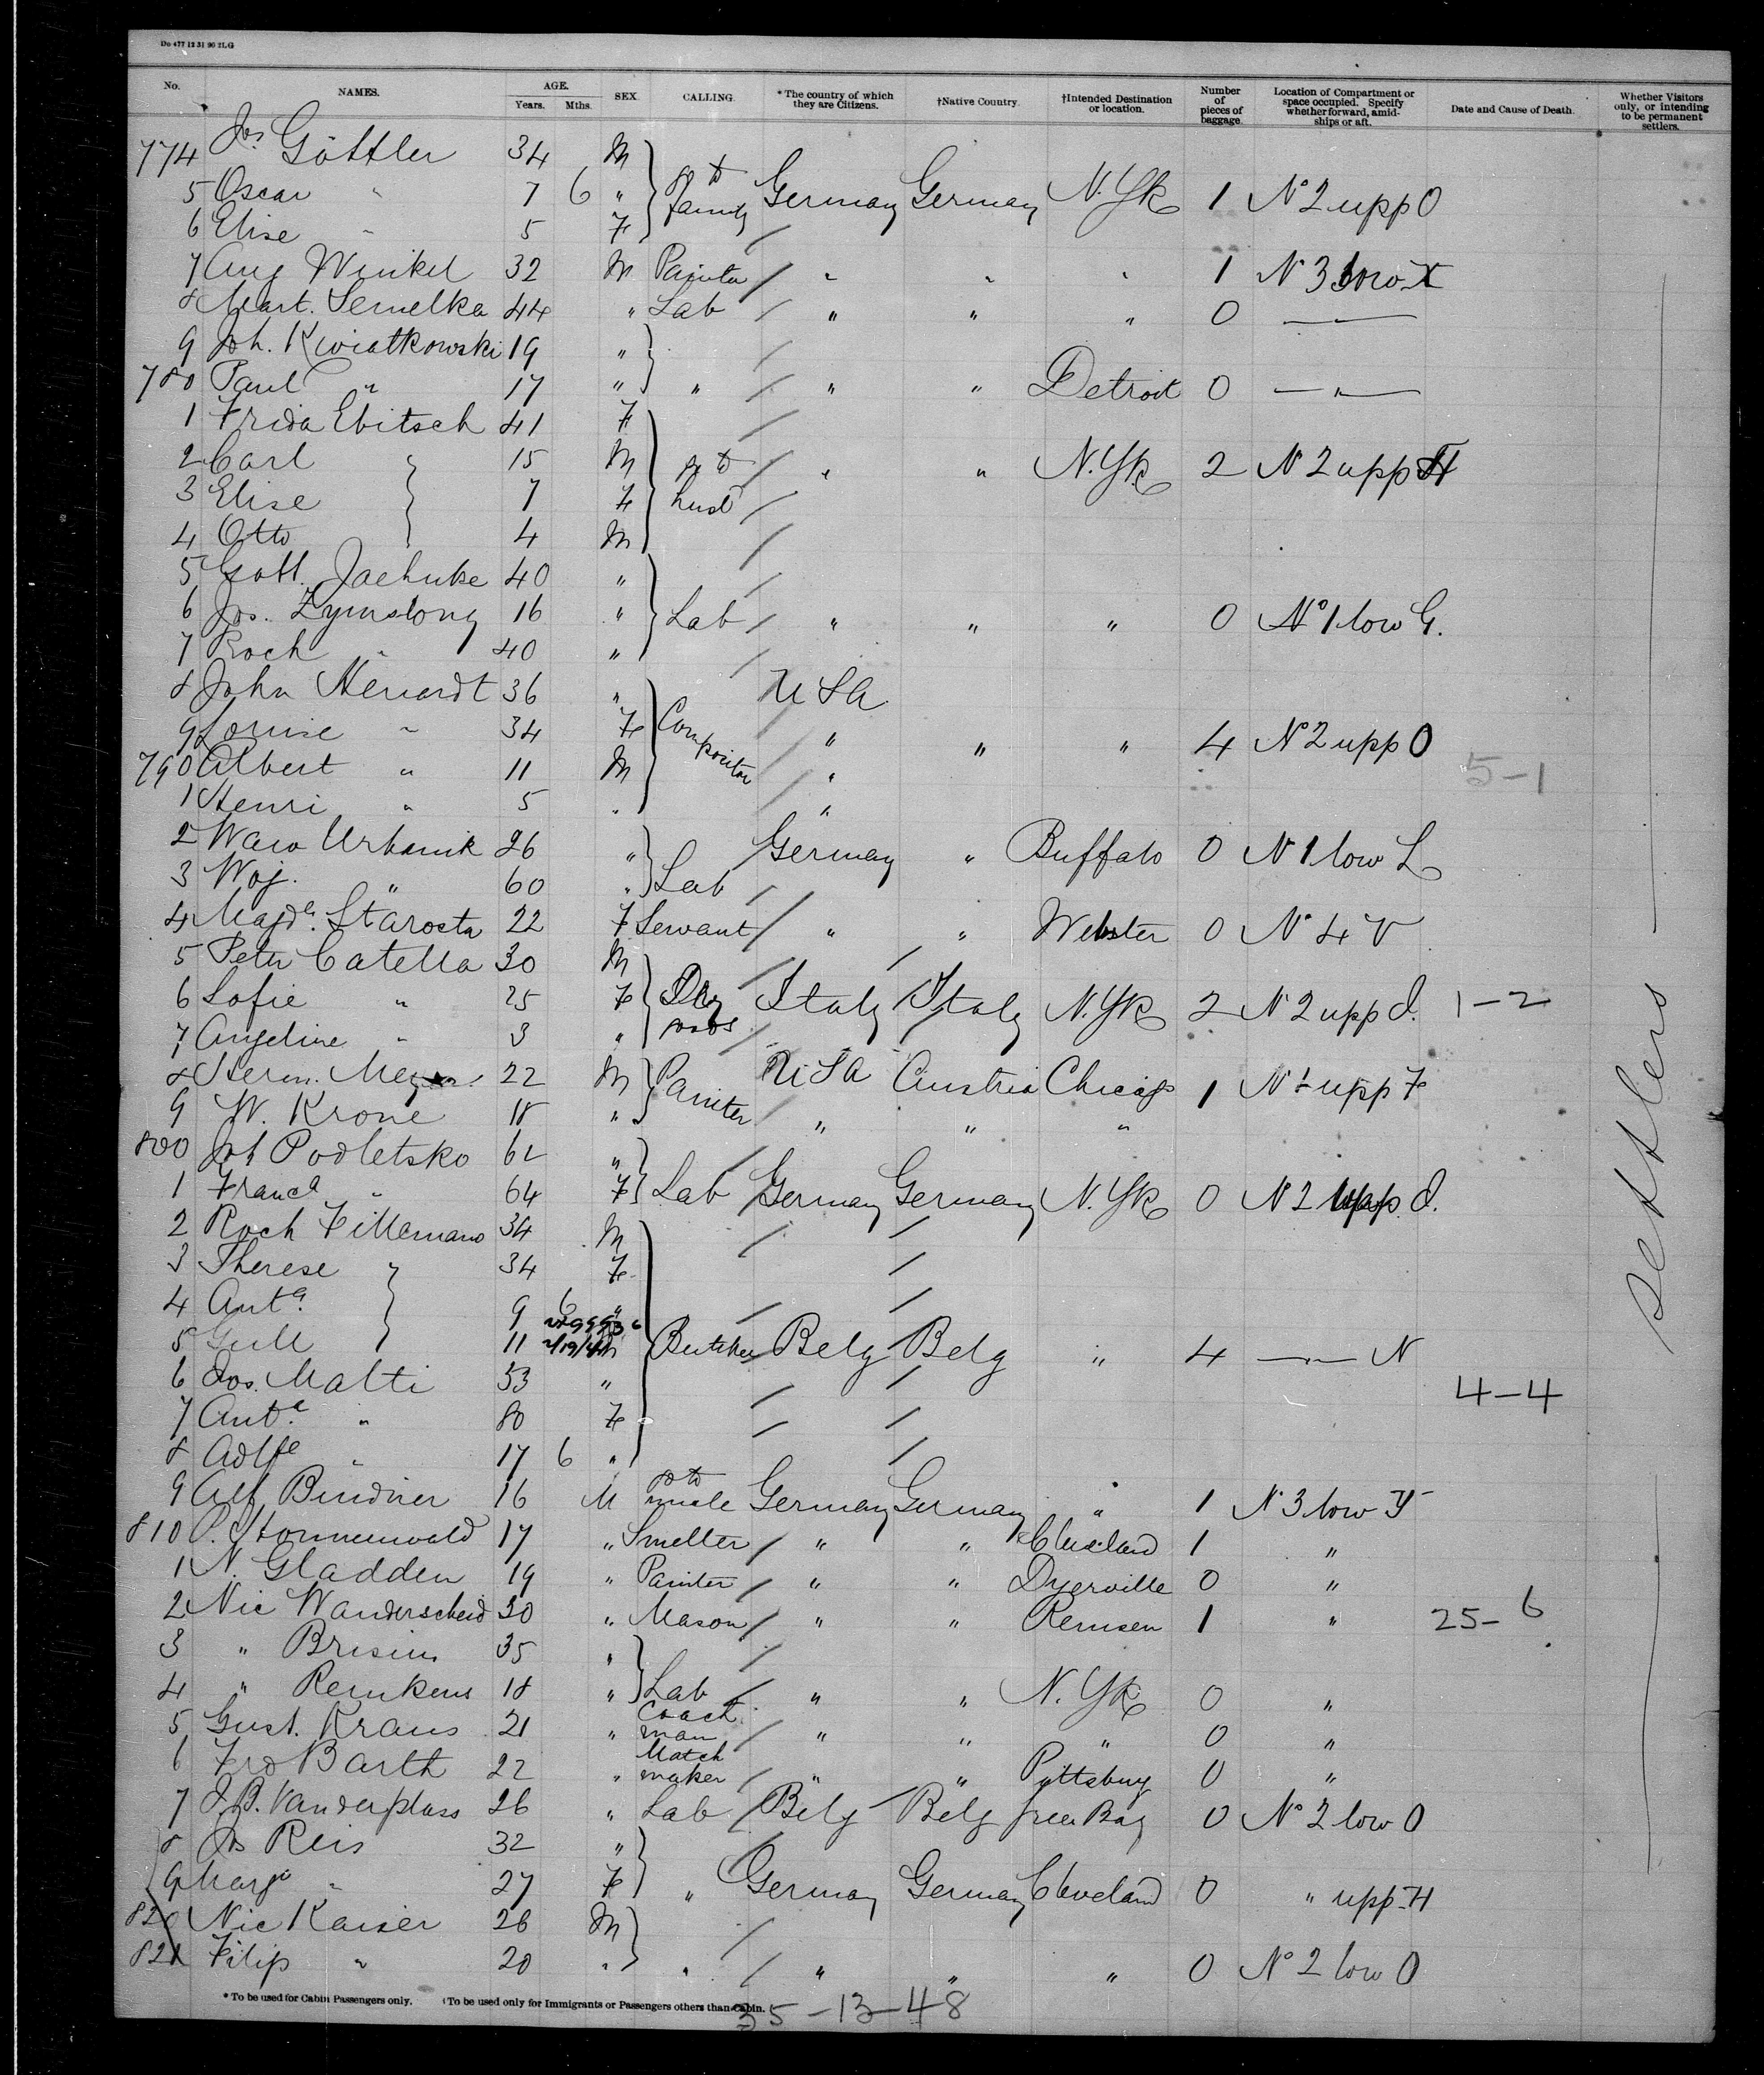 Do 477 12 31 90 2LG
No. NAMES. AGE. Years. Mths. SEX. CALLING. *The country of which they are Citizens. †Native Country. †Intended Destination or location. Number of pieces of baggage. Location of Compartment or space occupied. Specify whether forward, amidships or aft. Date and Cause of Death. Whether Visitors only, or intending to be permanent settlers.
774 Jos Göttler 34 M
5 Oscar " 7 6 " to family Germany Germany N.Yk 1 No 2 upp O
6 Elise " 5 F
7 Aug Winkel 32 M Painter " " " 1 N 3 low X
8 Mart. Semelka 44 " Lab " " " 0 —
9 Joh. Kwiatkowski 19 "
780 Paul " 17 " " " " Detroit 0 — " —
1 Frida Ebitsch 41 F
2 Carl " 15 M to husd " " N.Yk 2 No 2 upp H
3 Elise 7 F
4 Otto 4 M
5 Gott. Jaehnke 40 "
6 Jos. Zymslony 16 " Lab " " " 0 No 1 low G.
7 Roch " 40 "
8 John Henardt 36 " USA
9 Louise " 34 F Compositor " " " 4 No 2 upp O
790 Albert " 11 M " 5-1
1 Henri " 5 " "
2 Waw Urbanik 26 " Germany " Buffalo 0 N 1 low L
3 Woj. " 60 " Lab
4 Magda. Starosta 22 F Servant " " Webster 0 No 4 V
5 Peter Catella 30 M
6 Sofie " 25 F Dry goods Italy Italy N.Yk 2 No 2 upp d. 1-2
7 Angeline " 3 "
8 Herm. Meyer 22 M Painter USA Austria Chicago 1 No 1 upp F
9 W. Krone 18 " " " "
800 Jos Podletsko 62 "
1 Franca " 64 F Lab Germany Germany N.Yk 0 No 2 upp d.
2 Roch Fillemans 34 M
3 Therese " 34 F
4 Anta. 9 6 "
5 Gull 11 M Butcher Belg Belg " 4 — " — N
6 Jos. Malti 53 " 4-4
7 Ante. " 80 F
8 Adlfe " 17 6 "
9 Alf Bindner 16 M to uncle Germany Germany " 1 No 3 low Y
810 P. Stonnenwald 17 " Smelter " " Cleveland 1 "
1 N. Gladden 19 " Painter " " Dyerville 0 "
2 Nic Wanderscheid 30 " Mason " " Remsen 1 " 25-6
3 " Brisius 35 "
4 " Remkens 18 " Lab " " N.Yk 0 "
5 Gust. Kraus 21 " Coach man " " " 0 "
6 Frd Barth 22 " Match maker " " Pittsburg 0 "
7 J.B. Vanderplass 26 " Lab Belg Belg green Bay 0 No 2 low O
8 Js Reis 32 "
9 Marg. " 27 F " Germany Germany Cleveland 0 " upp H
820 Nic Kaiser 26 M
821 Filip " 20 " " " " " 0 No 2 low O
settlers
* To be used for Cabin Passengers only. †To be used only for Immigrants or Passengers others than Cabin.
35-13-48